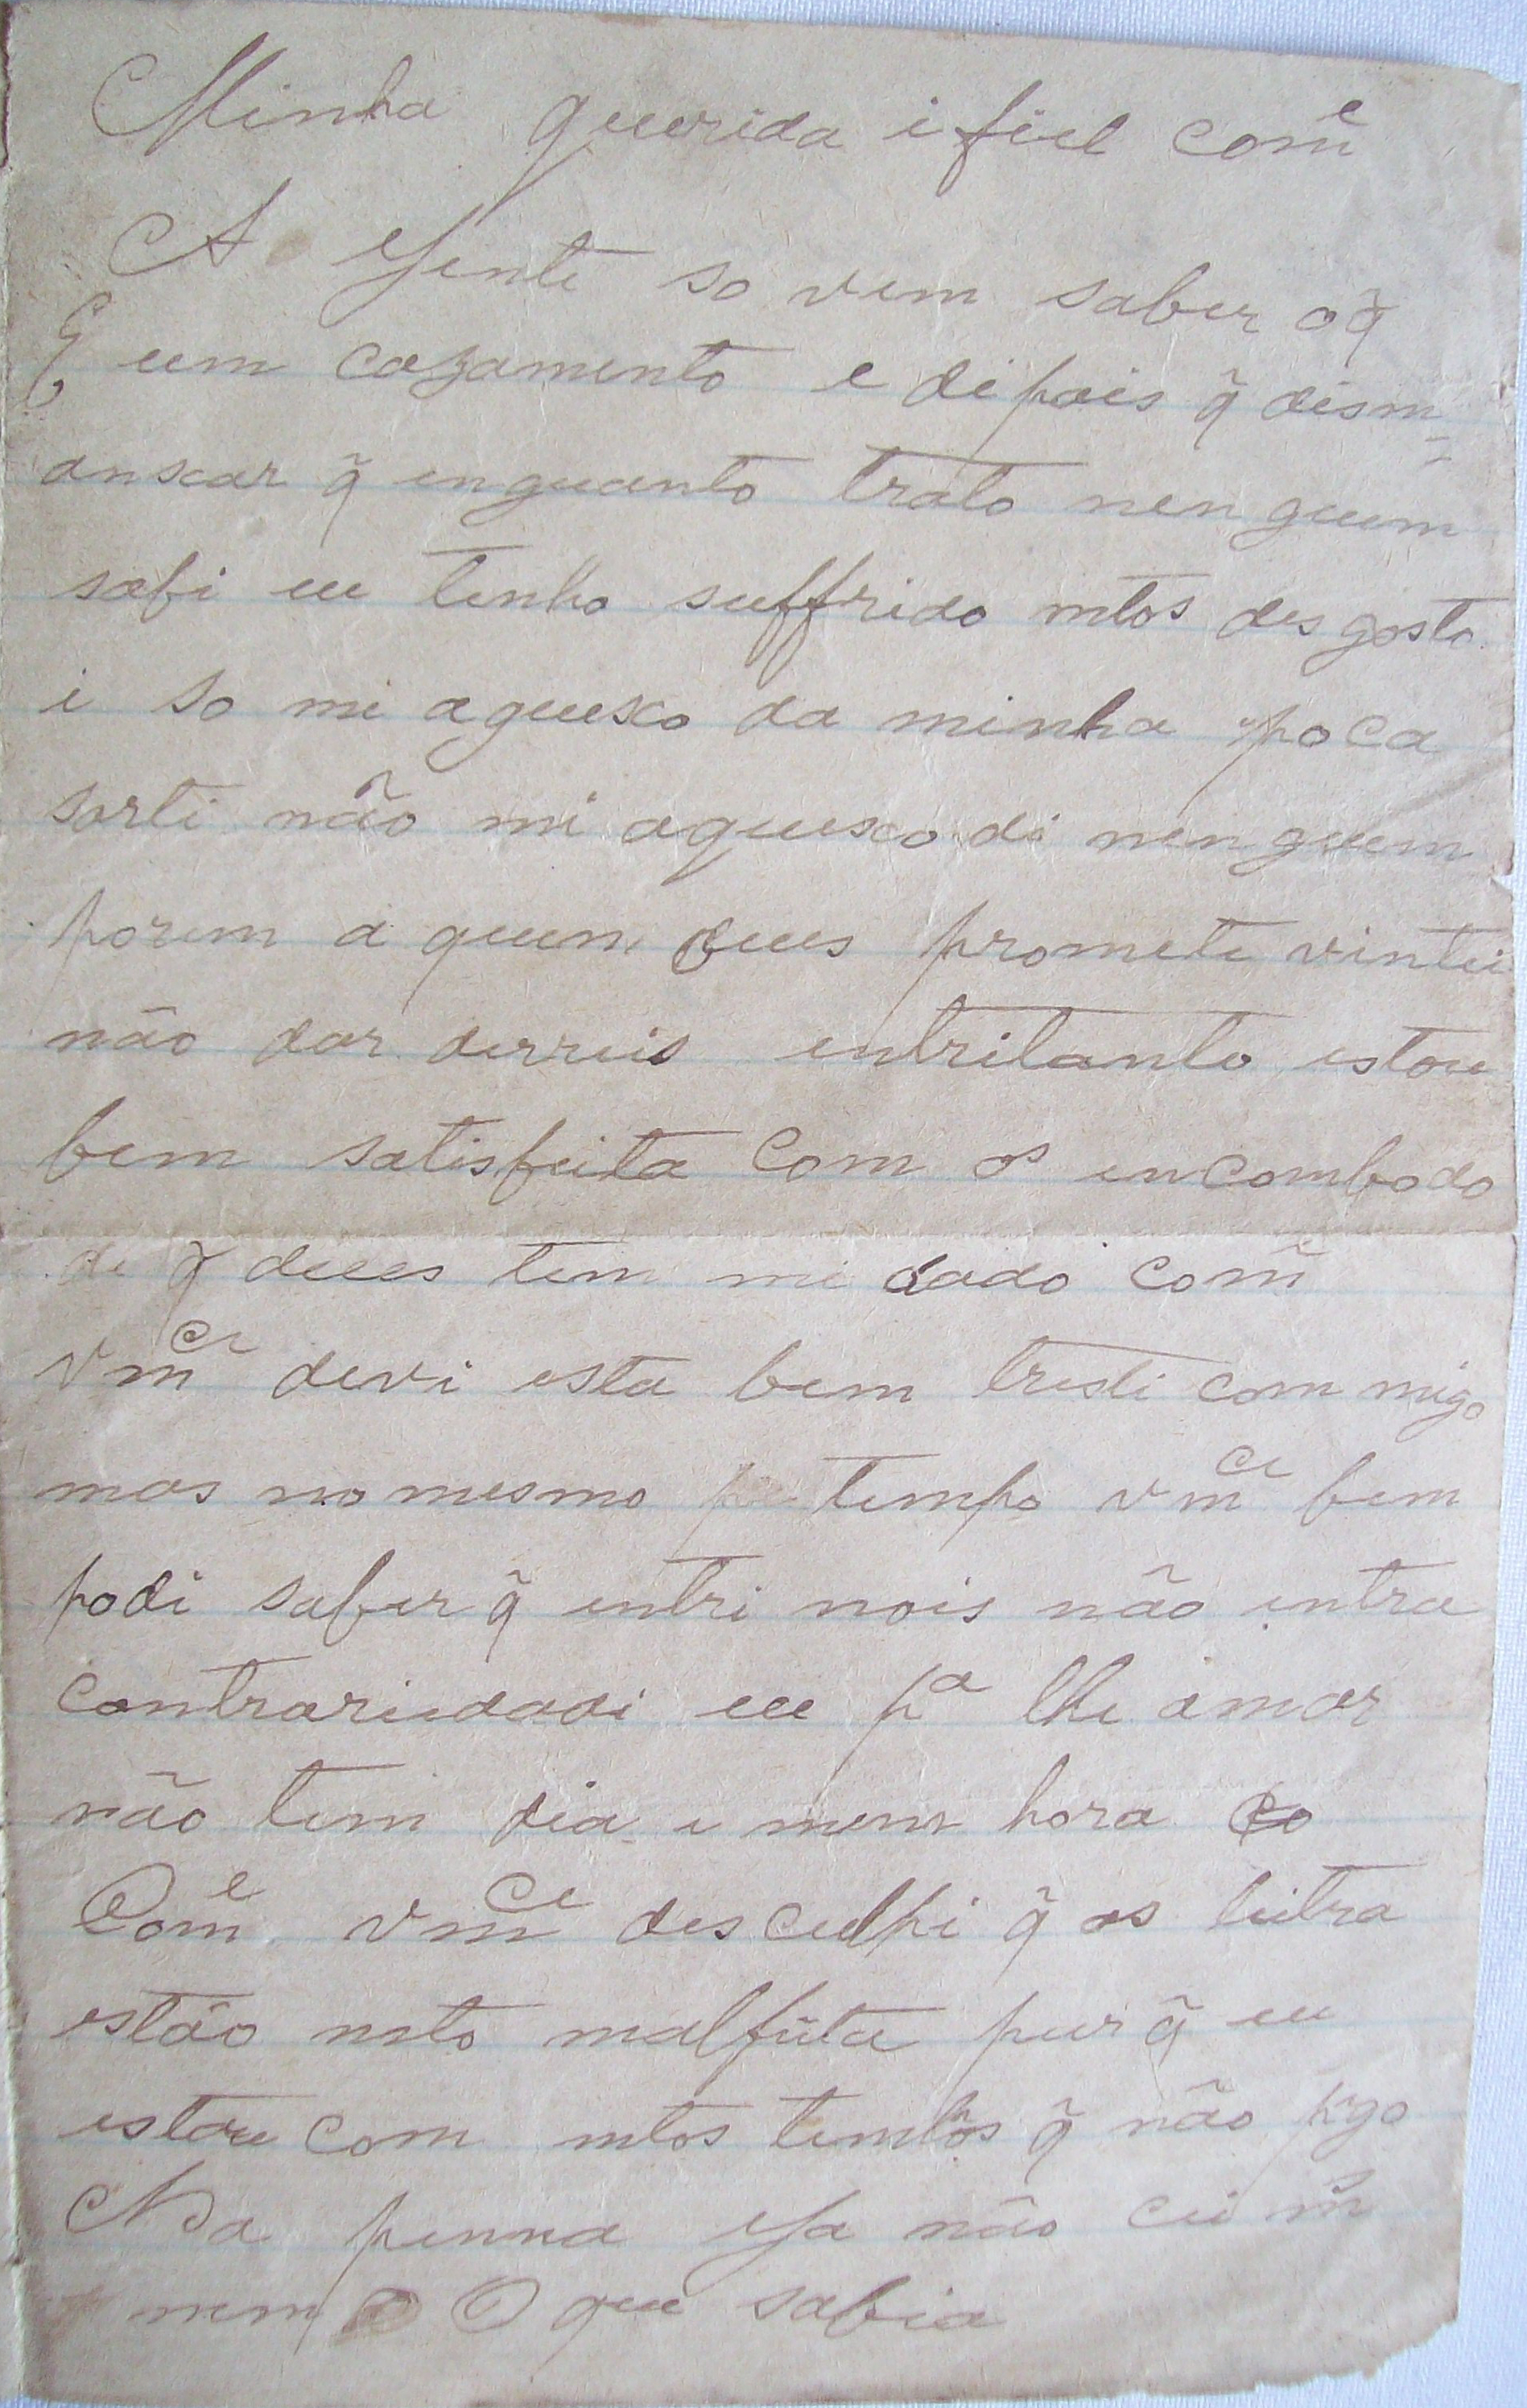 Minha querida i fiel comẽ
A Gente so vem saber oq̃
E um cazamento e dipois q̃ dism=
anxar q̃ enquanto trato nenguem
sabi eu tenho suffrido mtos desgosto
i so mi aqueixo da minha poca
sorti não mi aqueixo di nenguem
porem a quem deus promete vintei
não dar derreis entritanto estou
bem satisfeita com os encombodo
de q̃ deus tem mi dado comẽ
vmce devi esta bem tristi commigo
mas no mesmo tempo vmce bem
podi saber q̃ entri nois não entra
contrariedadi eu pa lhe amar
não tem dia e nem hora
Come vmce desculpi q̃ as leitra
estão mto malfeita pur q̃ eu
estou com mtos tempos q̃ não pego
Na penna Ja não cei ms
nem O que sabia